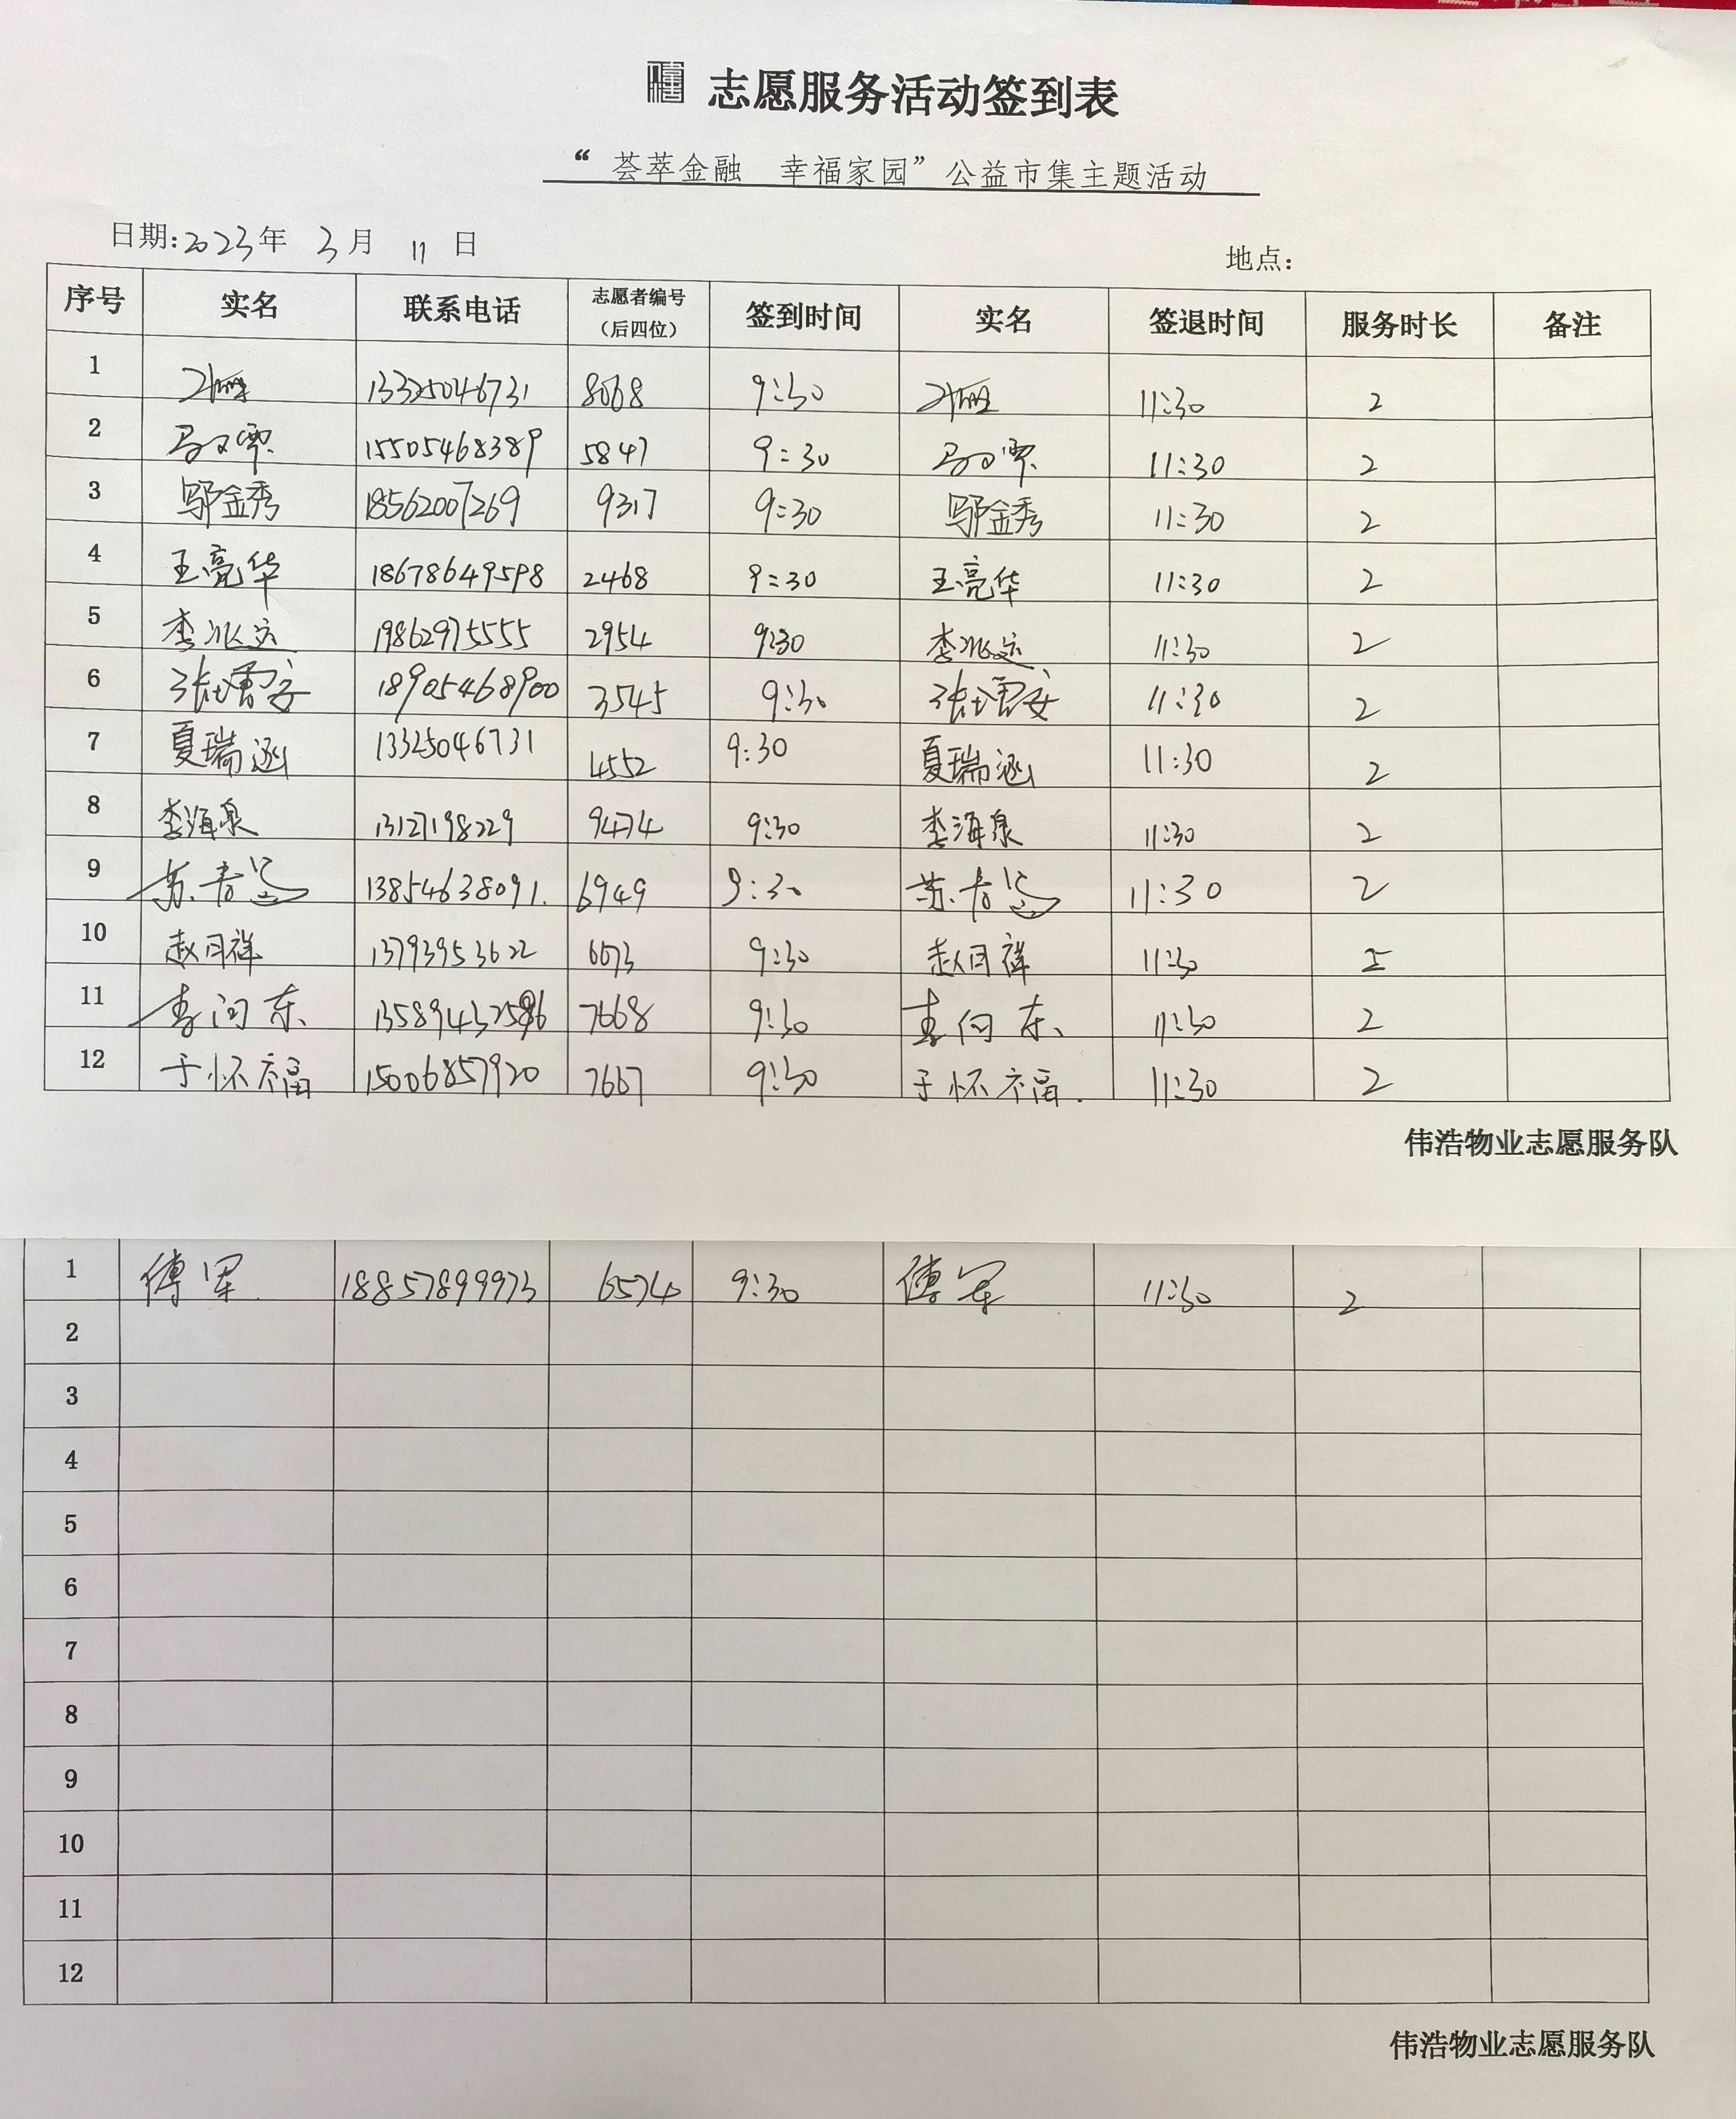 志愿服务活动签到表
“荟萃金融 幸福家园”公益市集主题活动
日期:2023年 3月 11 日 地点:
序号 实名 联系电话 志愿者编号（后四位） 签到时间 实名 签退时间 服务时长 备注
1 13325046731 8068 9:30 11:30 2
2 15505468389 5847 9:30 11:30 2
3 邬金秀 18562007269 9317 9:30 邬金秀 11:30 2
4 王亮华 18678649598 2468 9:30 王亮华 11:30 2
5 李兆运 19862975555 2954 9:30 李兆运 11:30 2
6 18905468900 3545 9:30 11:30 2
7 夏瑞涵 13325046731 4552 9:30 夏瑞涵 11:30 2
8 李海泉 13127198229 9474 9:30 李海泉 11:30 2
9 13854638091. 6949 9:30 11:30 2
10 赵月祥 13793953622 6673 9:30 赵月祥 11:30 2
11 李向东 7668 9:30 李向东 11:30 2
12 于怀福 15006857920 7667 9:30 于怀福. 11:30 2
伟浩物业志愿服务队
1 傅军 18857899973 6574 9:30 傅军 11:30 2
2
3
4
5
6
7
8
9
10
11
12
伟浩物业志愿服务队